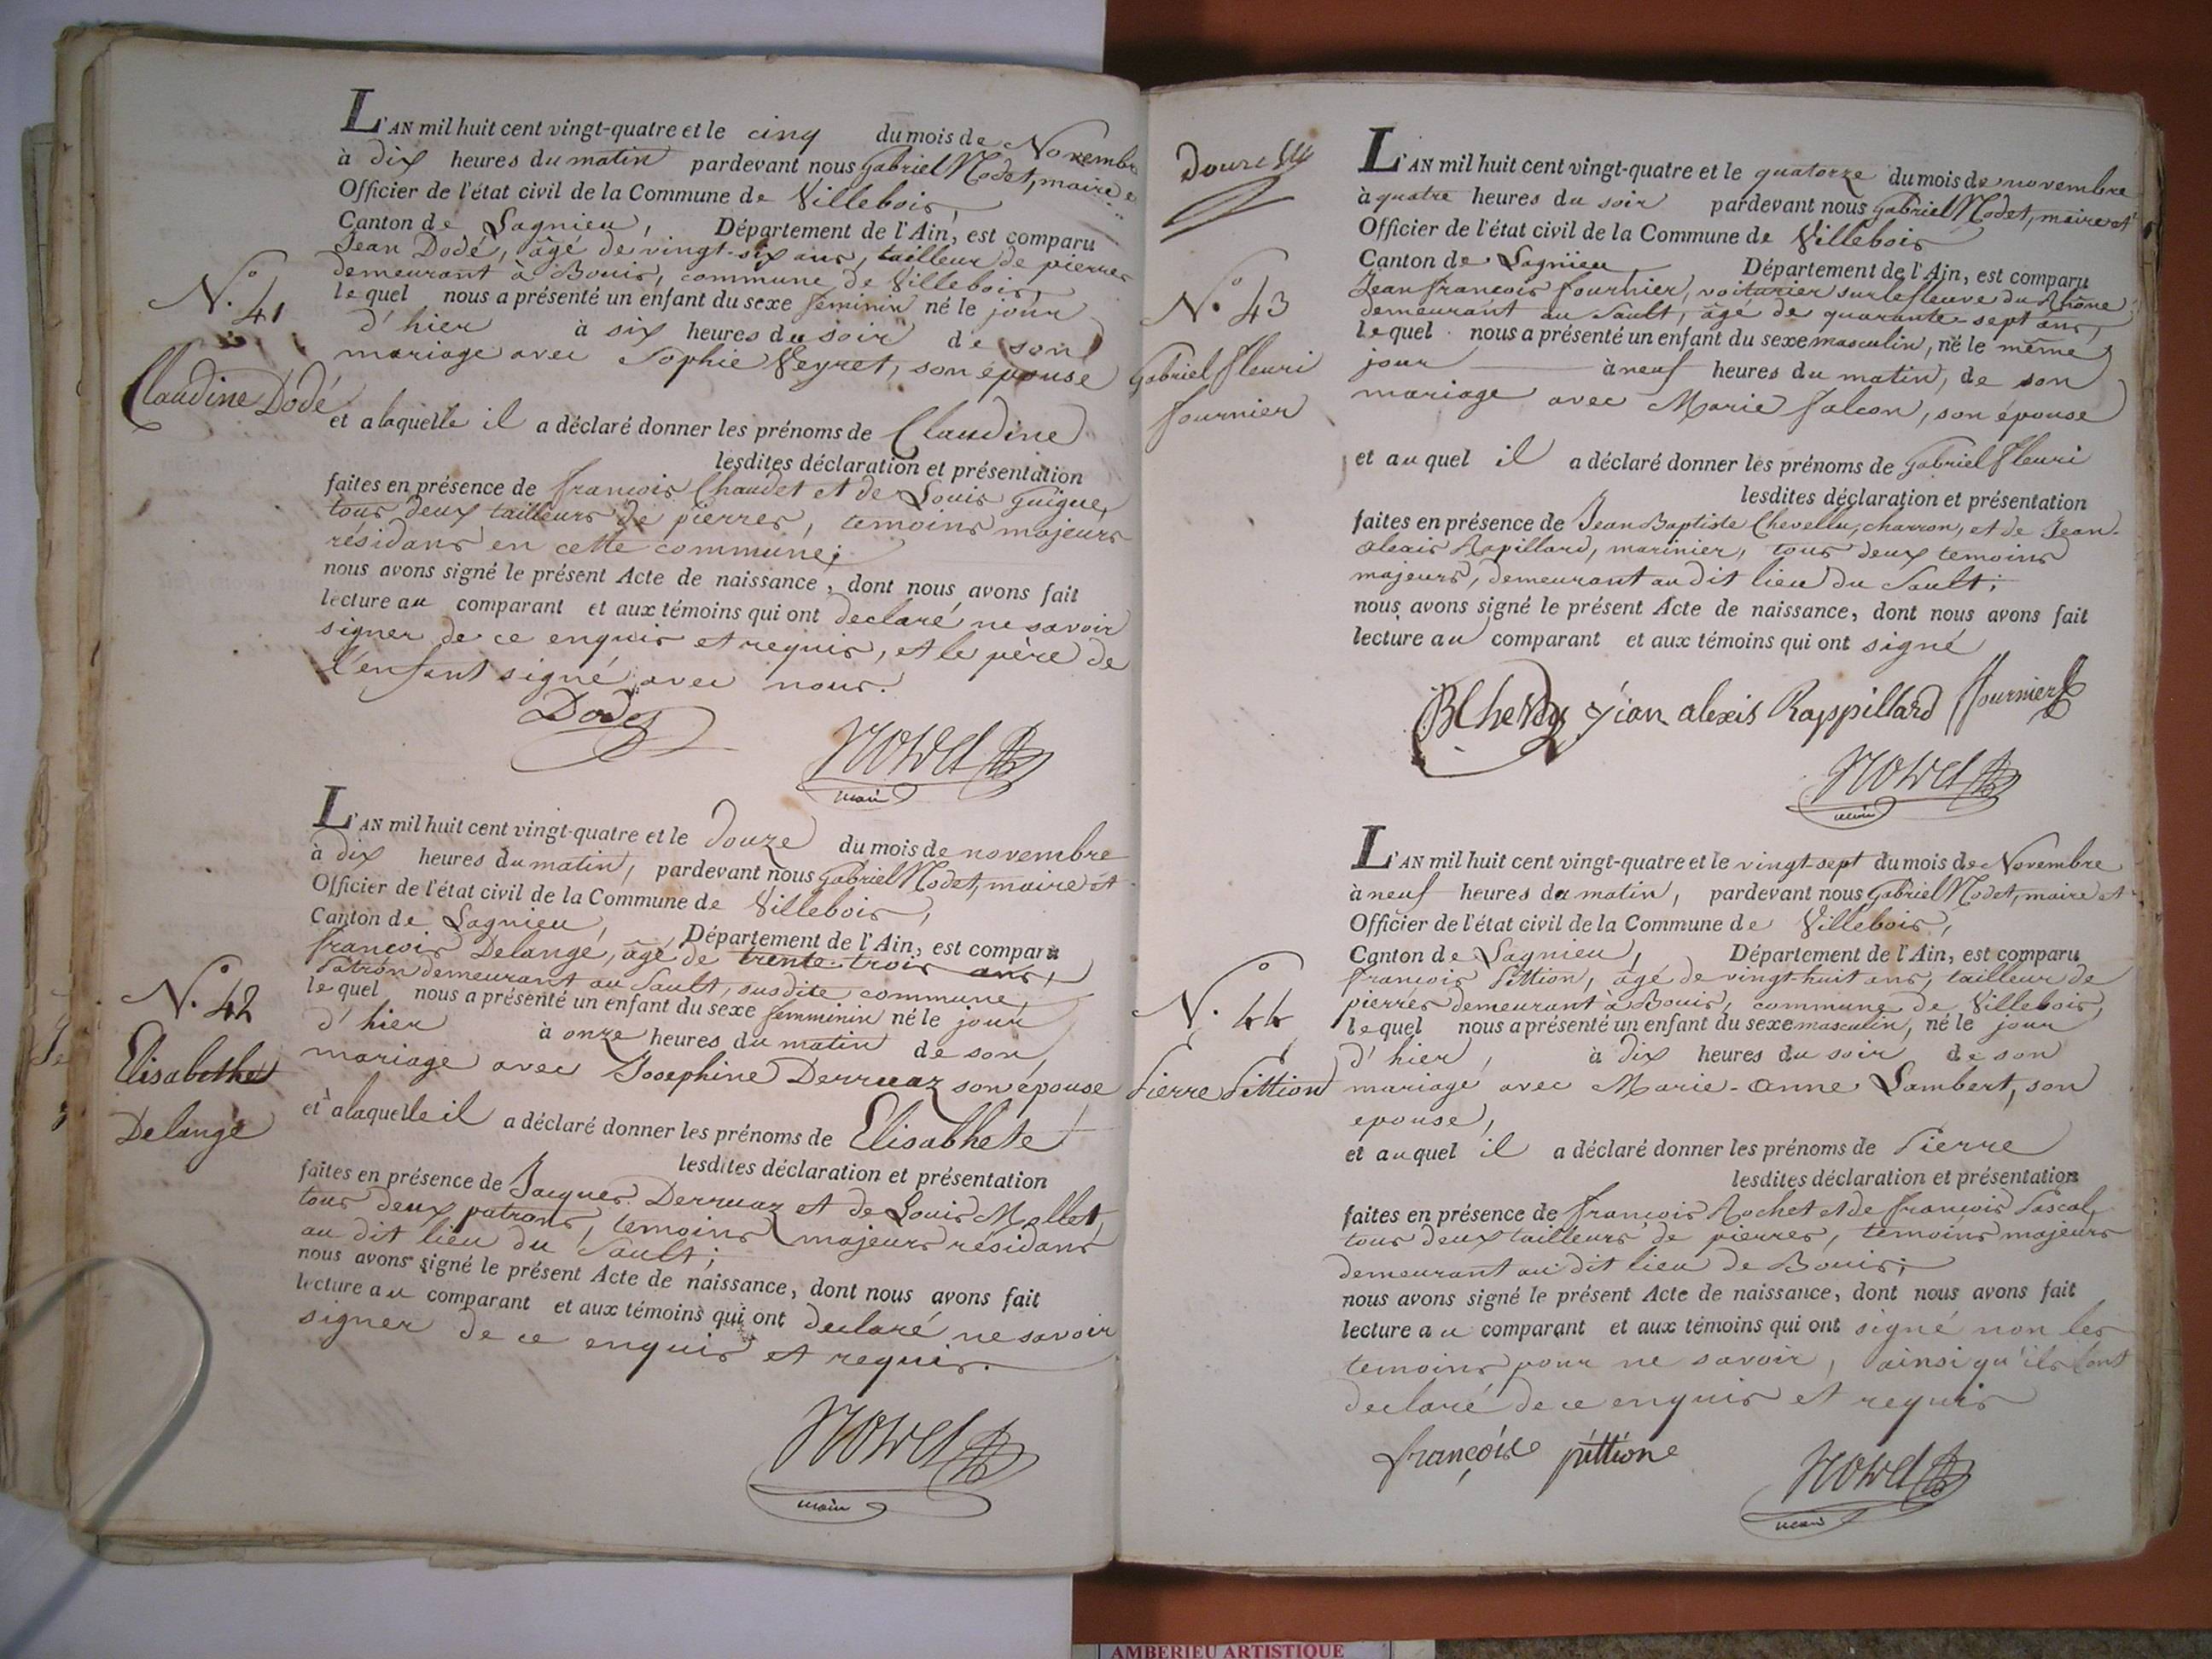 L'AN mil huit cent vingt-quatre et le cinq du mois de Novembre
à dix heures du matin pardevant nous Gabriel Nodet, maire et
Officier de l'état civil de la Commune de Villebois,
Canton de Lagnieu, Département de l'Ain, est comparu
Jean Dodé, âgé de vingt-six ans, tailleur de pierres
demeurant à Bouis, commune de Villebois,
N.º 41
lequel nous a présenté un enfant du sexe féminin né le jour
d'hier à six heures du soir de son
mariage avec Sophie Veyret, son épouse
Claudine Dodé
et a laquelle il a déclaré donner les prénoms de Claudine
lesdites déclaration et présentation
faites en présence de francois Chaudet et de Louis Guigue,
tous deux tailleurs de pierres, temoins majeurs
résidans en cette commune;
nous avons signé le présent Acte de naissance, dont nous avons fait
lecture au comparant et aux témoins qui ont declaré ne savoir
signer de ce enquis et requis, et le père de
l'enfant signé avec nous.
Dodé
Nodet
maire
L'AN mil huit cent vingt-quatre et le douze du mois de novembre
à dix heures du matin, pardevant nous Gabriel Nodet, maire et
Officier de l'état civil de la Commune de Villebois,
Canton de Lagnieu, Département de l'Ain, est comparu
francois Delange, âgé de trente-trois ans,
Patron demeurant au Sault, susdite commune,
N.º 42
lequel nous a présenté un enfant du sexe femminin né le jour
d'hier à onze heures du matin de son
mariage avec Josephine Derruaz son épouse
Elisabethe
Delange
et a laquelle il a déclaré donner les prénoms de Elisabhete
lesdites déclaration et présentation
faites en présence de Jacques Derruaz et de Louis Mollet,
tous deux patrons, temoins majeurs résidans
au dit lieu du Sault;
nous avons signé le présent Acte de naissance, dont nous avons fait
lecture au comparant et aux témoins qui ont declaré ne savoir
signer de ce enquis et requis.
Nodet
maire
L'AN mil huit cent vingt-quatre et le quatorze du mois de novembre
à quatre heures du soir pardevant nous Gabriel Nodet, maire et
Officier de l'état civil de la Commune de Villebois
Canton de Lagnieu Département de l'Ain, est comparu
Jean francois fournier, voiturier sur le fleuve du Rhône
demeurant au Sault, âgé de quarante-sept ans,
N.º 43
lequel nous a présenté un enfant du sexe masculin, né le même
jour à neuf heures du matin, de son
mariage avec Marie falcon, son épouse
Gabriel fleuri
fournier
et auquel il a déclaré donner les prénoms de Gabriel fleuri
lesdites déclaration et présentation
faites en présence de Jean Baptiste Chevellu, charron, et de Jean-
Alexis Rapillard, marinier, tous deux temoins
majeurs, demeurant au dit lieu du Sault;
nous avons signé le présent Acte de naissance, dont nous avons fait
lecture au comparant et aux témoins qui ont signé
jean alexis Rappillard fournier
Nodet
maire
L'AN mil huit cent vingt-quatre et le vingt-sept du mois de Novembre
à neuf heures du matin, pardevant nous Gabriel Nodet, maire et
Officier de l'état civil de la Commune de Villebois,
Canton de Lagnieu, Département de l'Ain, est comparu
francois Pittion, âgé de vingt-huit ans, tailleur de
pierres demeurant à Bouis, commune de Villebois,
N.º 44
lequel nous a présenté un enfant du sexe masculin, né le jour
d'hier, à dix heures du soir de son
Pierre Pittion
mariage avec Marie-Anne Lambert, son
epouse,
et auquel il a déclaré donner les prénoms de Pierre
lesdites déclaration et présentation
faites en présence de francois Rochet et de francois Pascal,
tous deux tailleurs de pierres, temoins majeurs
demeurant au dit lieu de Bouis;
nous avons signé le présent Acte de naissance, dont nous avons fait
lecture au comparant et aux témoins qui ont signé non les
temoins pour ne savoir, ainsi qu'ils l'ont
declaré de ce enquis et requis
françois pittion
Nodet
maire
AMBERIEU ARTISTIQUE